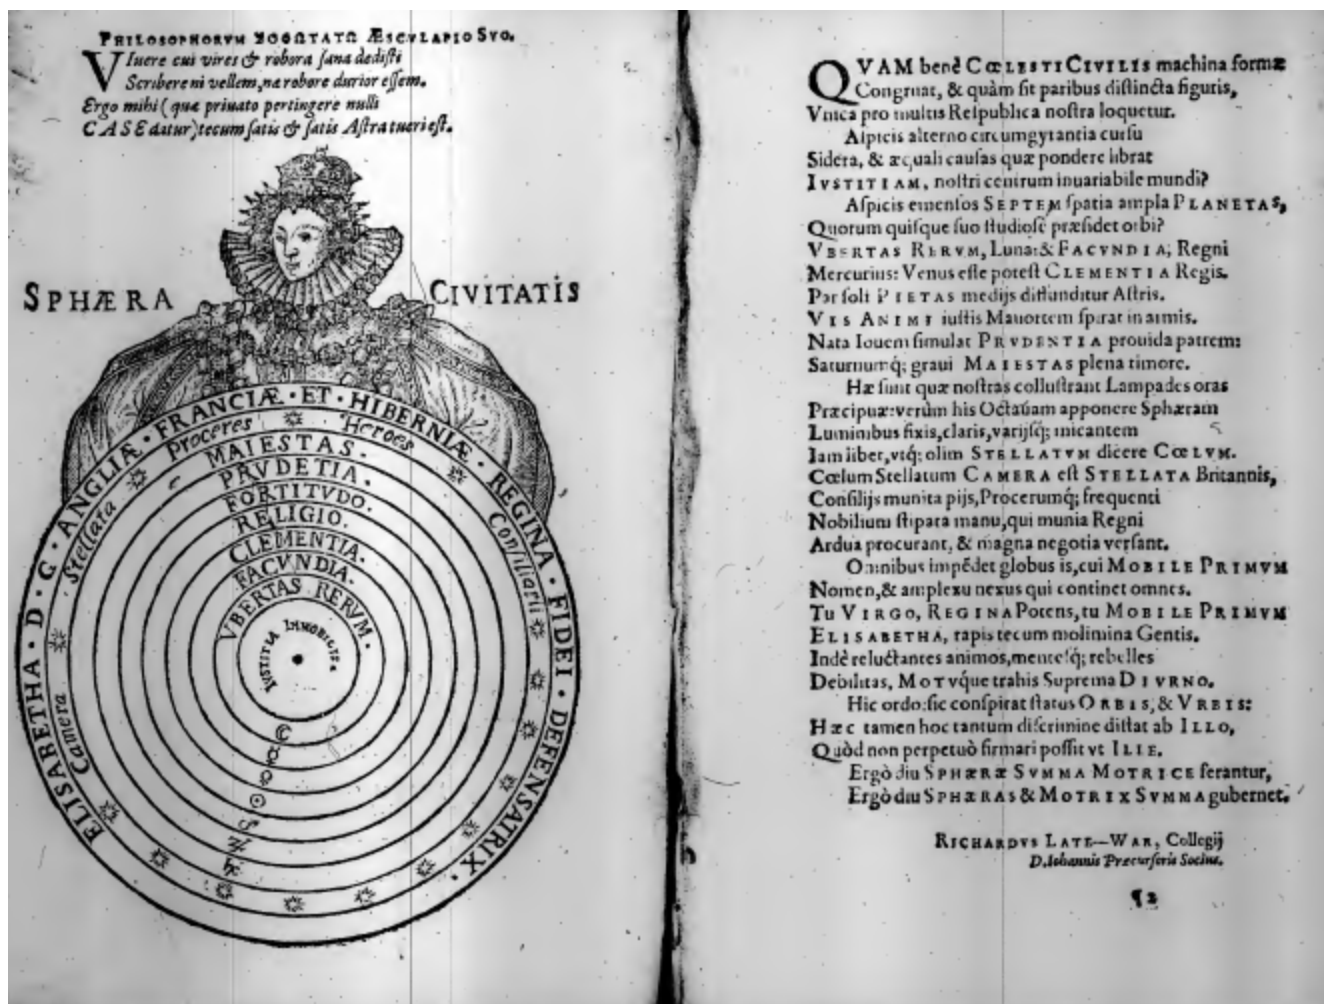 PHILOSOPHORVM ÆSCVLAPIO SVO.
VIuere cui vires & robora sana dedisti
Scribere ni vellem, næ robore durior essem.
Ergo mihi (quæ priuato pertingere nulli
CASE datur) tecum satis & satis Astra tueri est.
SPHÆRA CIVITATIS
ELISABETHA · D · G · ANGLIÆ · FRANCIÆ · ET · HIBERNIÆ · REGINA · FIDEI · DEFENSATRIX ·
Camera Stellata Proceres Heroes Consiliarii
MAIESTAS.
PRVDETIA.
FORTITVDO.
RELIGIO.
CLEMENTIA.
FACVNDIA.
VBERTAS RERVM.
IVSTITIA IMMOBILIS
☾
☿
♀
☉
♂
♃
♄
QVAM benè CŒLESTI CIVILIS machina formæ
Congruat, & quàm sit paribus distincta figuris,
Vnica pro multis Respublica nostra loquetur.
Aspicis alterno circumgyrantia cursu
Sidera, & æquali causas quæ pondere librat
IVSTITIAM, nostri centrum inuariabile mundi?
Aspicis emensos SEPTEM spatia ampla PLANETAS,
Quorum quisque suo studiosè præsidet orbi?
VBERTAS RERVM, Luna: & FACVNDIA, Regni
Mercurius: Venus esse potest CLEMENTIA Regis.
Par soli PIETAS medijs diffunditur Astris.
VIS ANIMI iustis Mauortem spirat in armis.
Nata Iouem simulat PRVDENTIA prouida patrem:
Saturnumq́; graui MAIESTAS plena timore.
Hæ sunt quæ nostras collustrant Lampades oras
Præcipuæ: verùm his Octauam apponere Sphæram
Luminibus fixis, claris, varijsq́; micantem
Iam liber, vtq́; olim STELLATVM dicere CŒLVM.
Cœlum Stellatum CAMERA est STELLATA Britannis,
Consilijs munita pijs, Procerumq́; frequenti
Nobilium stipata manu, qui munia Regni
Ardua procurant, & magna negotia versant.
Omnibus impẽdet globus is, cui MOBILE PRIMVM
Nomen, & amplexu nexus qui continet omnes.
Tu VIRGO, REGINA Potens, tu MOBILE PRIMVM
ELISABETHA, rapis tecum molimina Gentis.
Indè reluctantes animos, mentesq́; rebelles
Debilitas, MOTVque trahis Suprema DIVRNO.
Hic ordo: sic conspirat status ORBIS, & VRBIS:
Hæc tamen hoc tantum discrimine distat ab ILLO,
Quòd non perpetuò firmari possit vt ILLE.
Ergò diu SPHÆRÆ SVMMA MOTRICE ferantur,
Ergò diu SPHÆRAS & MOTRIX SVMMA gubernet.
RICHARDVS LATE—WAR, Collegij
D. Iohannis Præcursoris Socius.
¶2